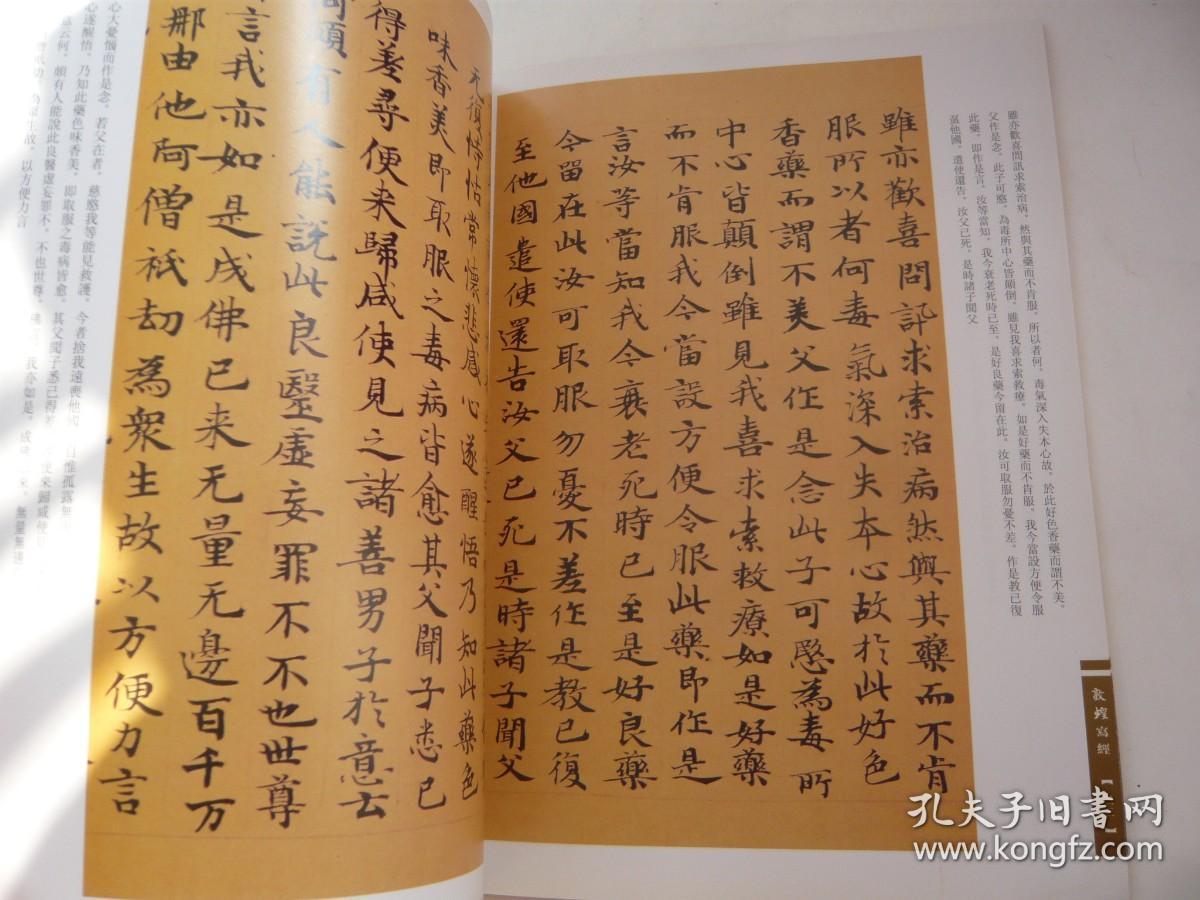 雖亦歡喜問訊求索治病。然與其藥而不肯服。所以者何。毒氣深入失本心故。於此好色香藥而謂不美。
父作是念。此子可愍。為毒所中心皆顛倒。雖見我喜求索救療。如是好藥而不肯服。我今當設方便令服
此藥。即作是言。汝等當知。我今衰老死時已至。是好良藥今留在此。汝可取服勿憂不差。作是教已復
至他國。遣使還告。汝父已死。是時諸子聞父
雖亦歡喜問訊求索治病然與其藥而不肯
服所以者何毒氣深入失本心故於此好色
香藥而謂不美父作是念此子可愍為毒所
中心皆顛倒雖見我喜求索救療如是好藥
而不肯服我今當設方便令服此藥即作是
言汝等當知我今衰老死時已至是好良藥
今留在此汝可取服勿憂不差作是教已復
至他國遣使還告汝父已死是時諸子聞父
敦煌寫經
无復恃怙常懷悲感心遂醒悟乃知此藥色
味香美即取服之毒病皆愈其父聞子悉已
得差尋便来歸咸使見之諸善男子於意云
何頗有人能說此良醫虛妄罪不不也世尊
言我亦如是成佛已来无量无邊百千万
那由他阿僧祇劫為衆生故以方便力言
心大憂惱而作是念。若父在者。慈愍我等能見救護。今者捨我遠喪他國
自惟孤露無
心遂醒悟。乃知此藥色味香美。即取服之毒病皆愈。其父聞子悉已得差
便來歸咸使
意云何。頗有人能說此良醫虛妄罪不。不也世尊。
我亦如是。成
來。無量無邊
僧祇劫。為眾生故。以方便力言
孔夫子旧书网
www.kongfz.com